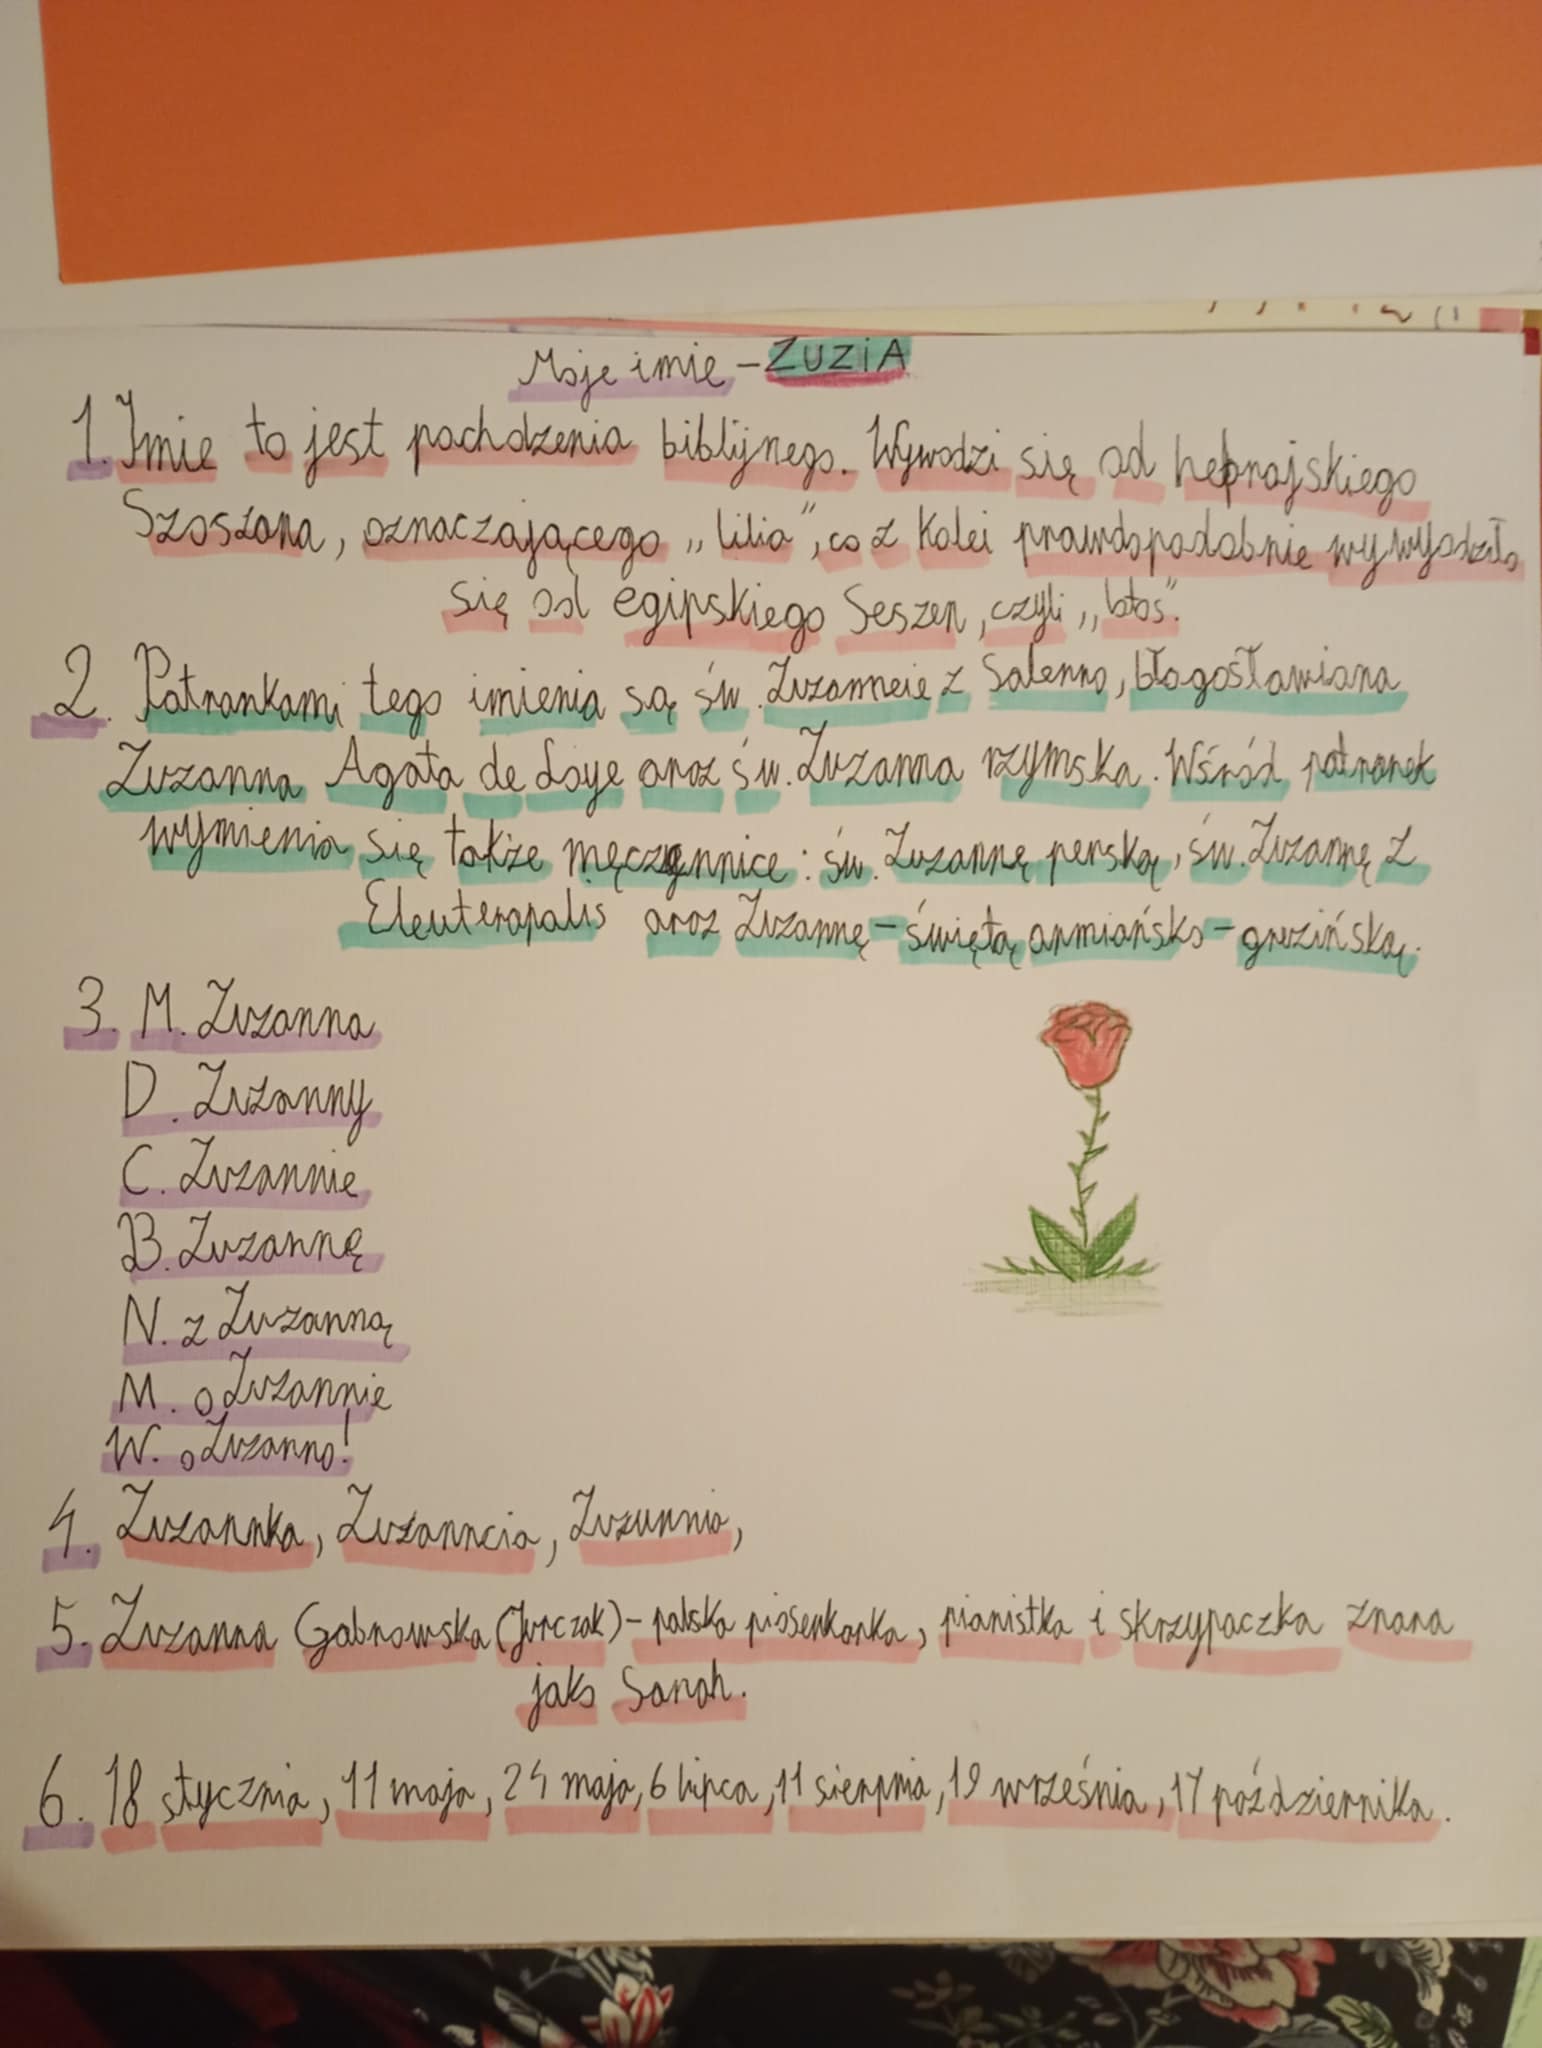 Moje imię – ZUZiA
1. Imię to jest pochodzenia biblijnego. Wywodzi się od hebrajskiego
Szoszana, oznaczającego „lilia", co z kolei prawdopodobnie wywodziło
się od egipskiego Seszen, czyli „lotos".
2. Patronkami tego imienia są św. z Salerno, błogosławiona
Zuzanna Agata de Loye oraz św. Zuzanna rzymska. Wśród patronek
wymienia się także męczennice: św. Zuzannę perską, św. Zuzannę z
Eleuteropolis oraz Zuzannę – świętą armiańsko – gruzińską.
3. M. Zuzanna
D. Zuzanny
C. Zuzannie
B. Zuzannę
N. z Zuzanną
M. o Zuzannie
W. o Zuzanno!
4. Zuzannka, Zuzanncia, Zuzunnia,
5. Zuzanna Grabowska (Jurczak) – polska piosenkarka, pianistka i skrzypaczka znana
jako Sanah.
6. 18 stycznia, 11 maja, 24 maja, 6 lipca, 11 sierpnia, 19 września, 17 października.